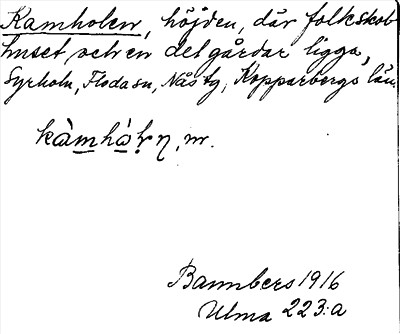 Kamholen, höjden, där folkskol-
huset och en del gårdar ligga,
Syrholn, Floda sn, Nås tg, Kopparbergs län.
kàmhò̀ḷn, nr.
Bannbers 1916
Ulma 223:a